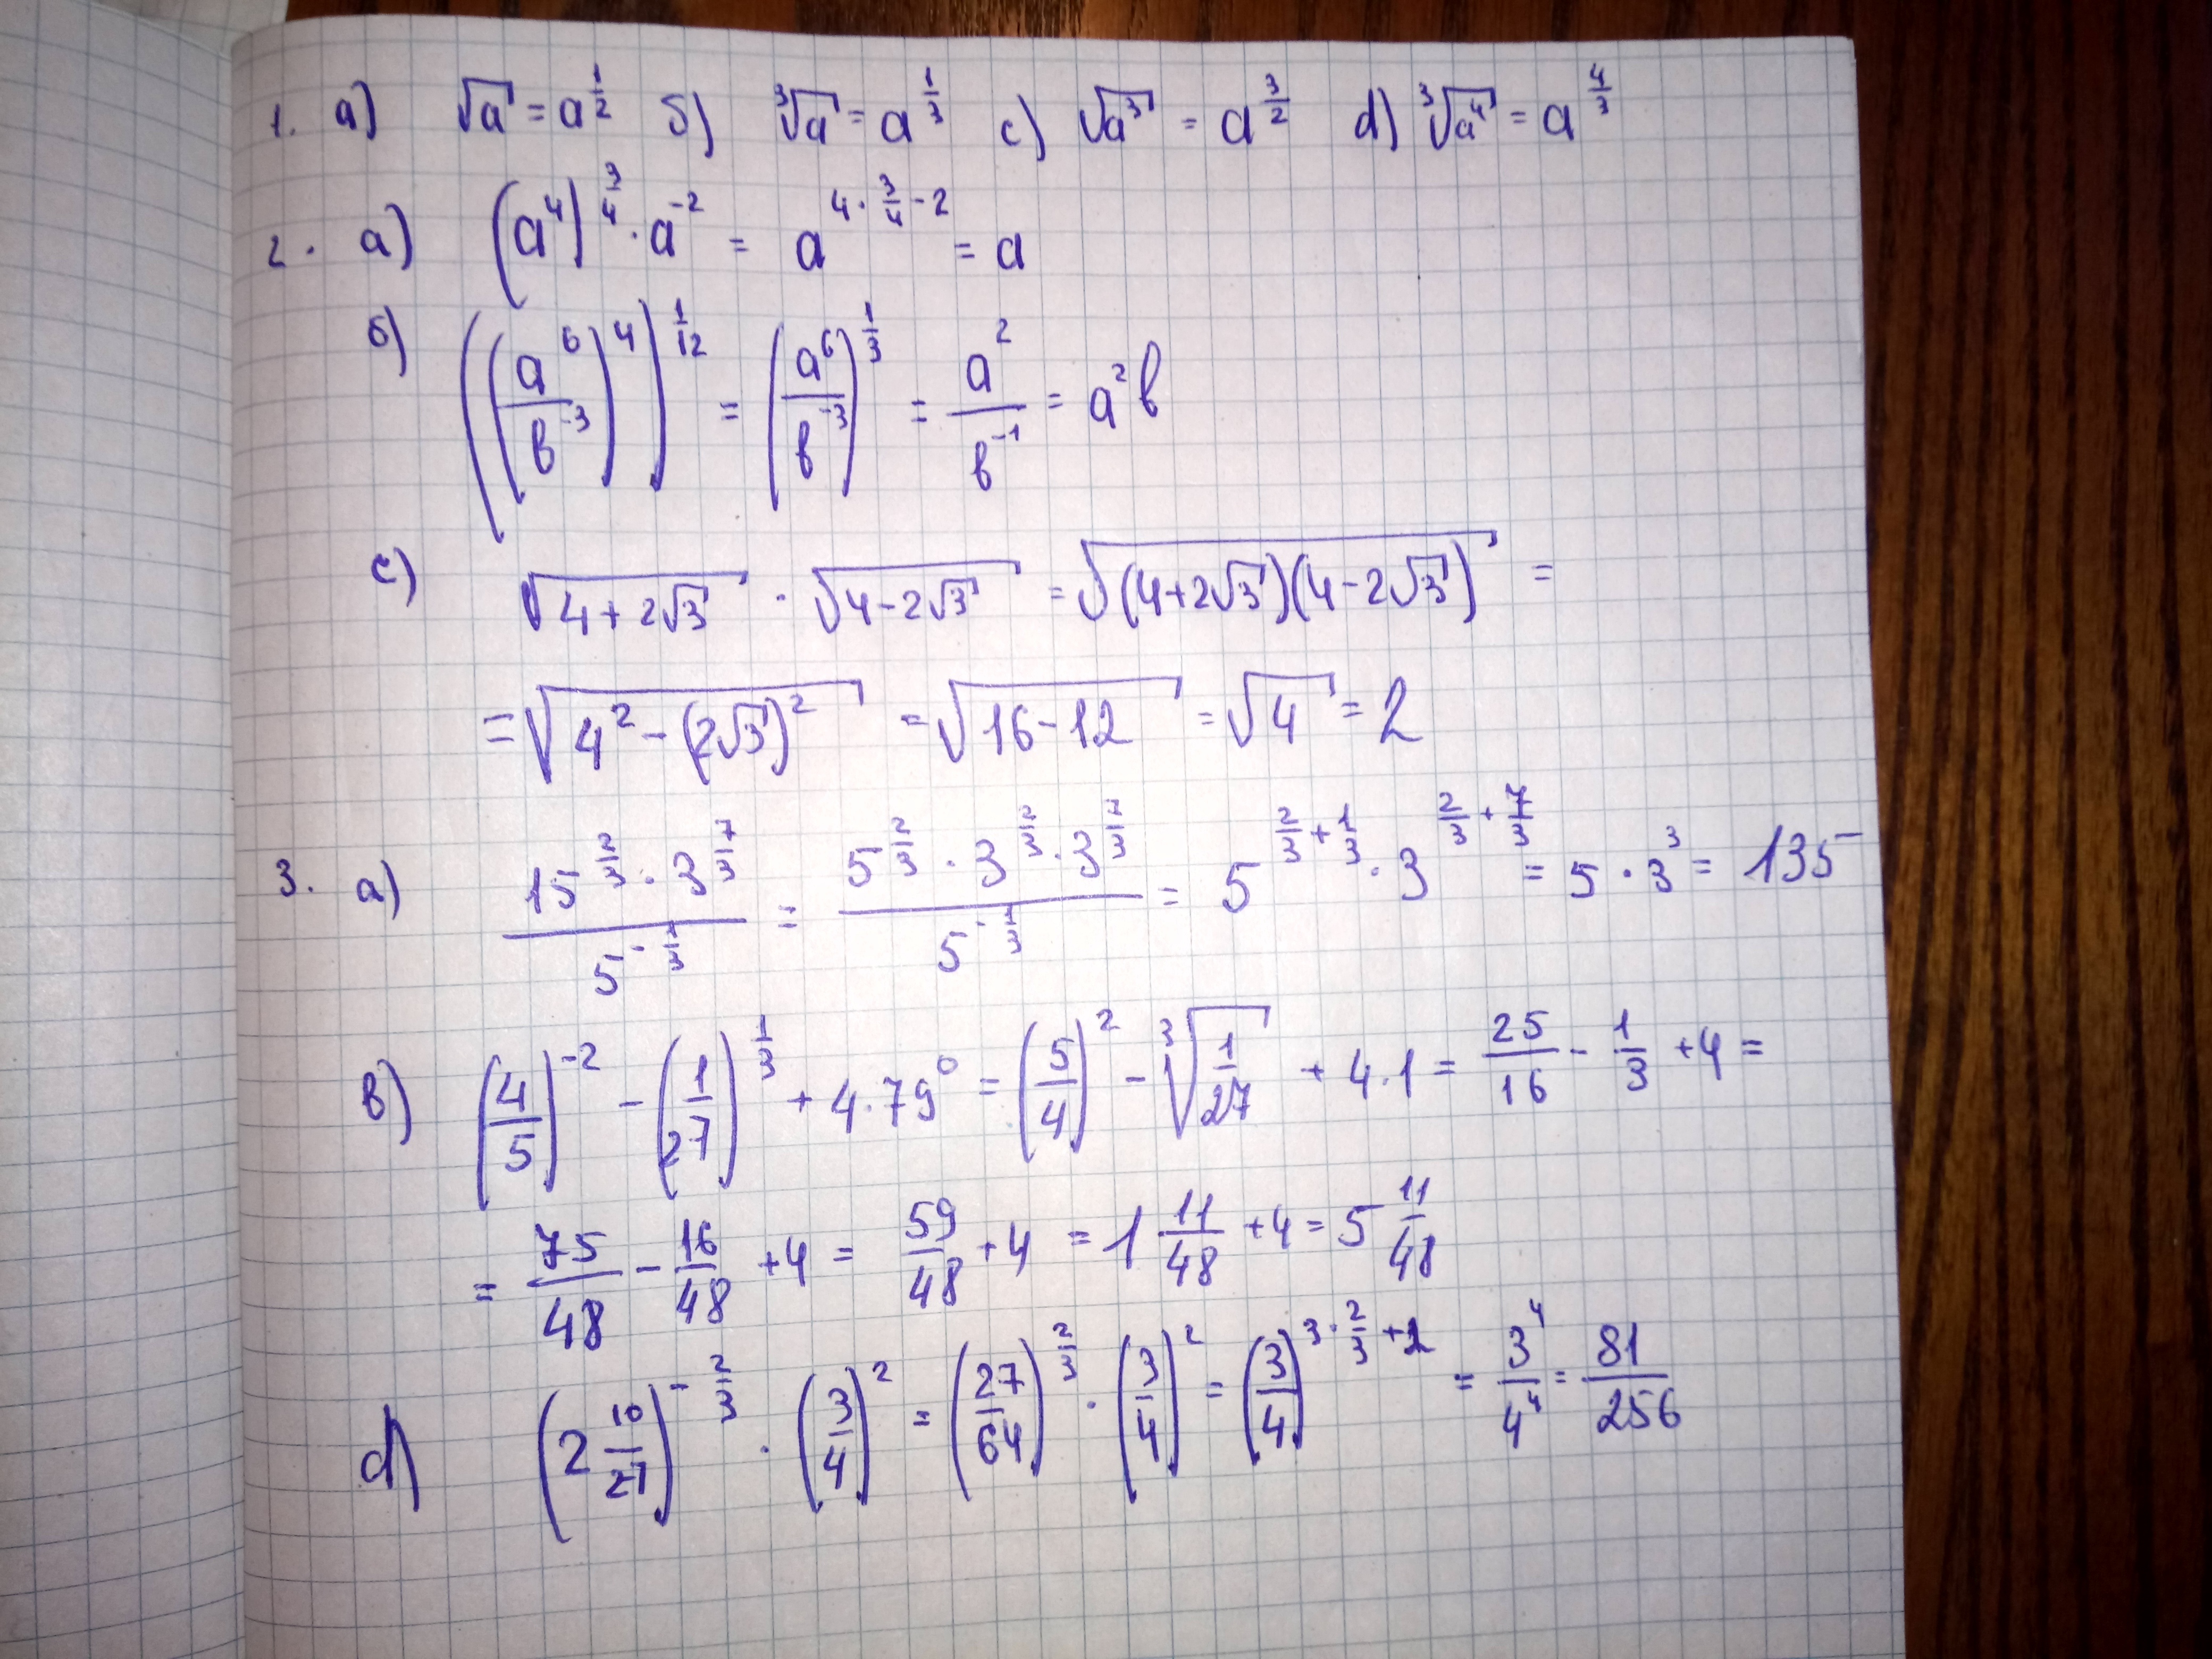 1. a) √a = a^(1/2) б) ∛a = a^(1/3) c) √(a³) = a^(3/2) d) ∛(a⁴) = a^(4/3)
2. a) (a⁴)^(3/4) · a^(-2) = a^(4·3/4-2) = a
б) ((a⁶/в^(-3))⁴)^(1/12) = (a⁶/в^(-3))^(1/3) = a²/в^(-1) = a²в
c) √(4+2√3) · √(4-2√3) = √((4+2√3)(4-2√3)) =
= √(4²-(2√3)²) = √(16-12) = √4 = 2
3. a) (15^(2/3) · 3^(7/3))/5^(-1/3) = (5^(2/3) · 3^(2/3) · 3^(7/3))/5^(-1/3) = 5^(2/3+1/3) · 3^(2/3+7/3) = 5 · 3³ = 135
в) (4/5)^(-2) - (1/27)^(1/3) + 4·79⁰ = (5/4)² - ∛(1/27) + 4·1 = 25/16 - 1/3 + 4 =
= 75/48 - 16/48 + 4 = 59/48 + 4 = 1 11/48 + 4 = 5 11/48
d) (2 10/27)^(-2/3) · (3/4)² = (27/64)^(2/3) · (3/4)² = (3/4)^(3·2/3+2) = 3⁴/4⁴ = 81/256